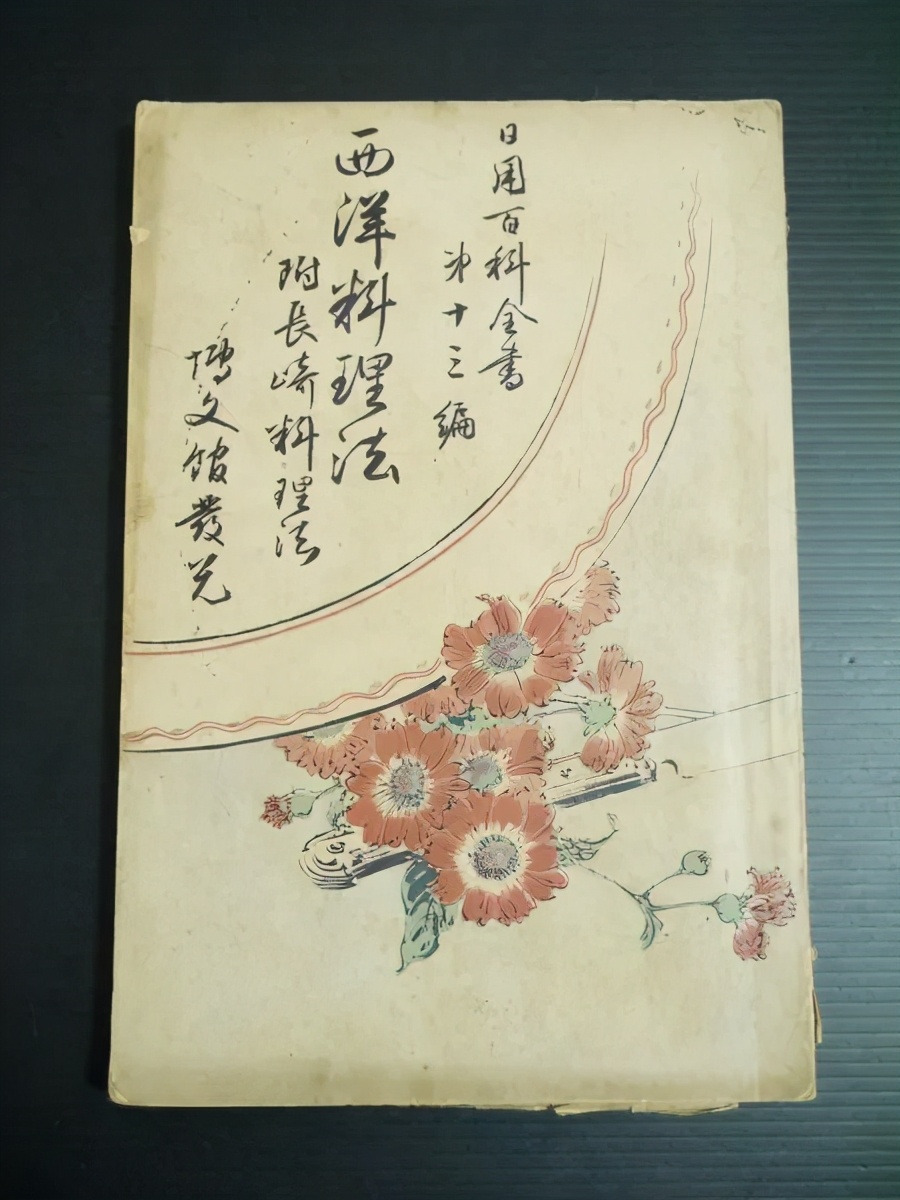 日用百科全書
第十三編
西洋料理法
附長崎料理法
博文館發兌